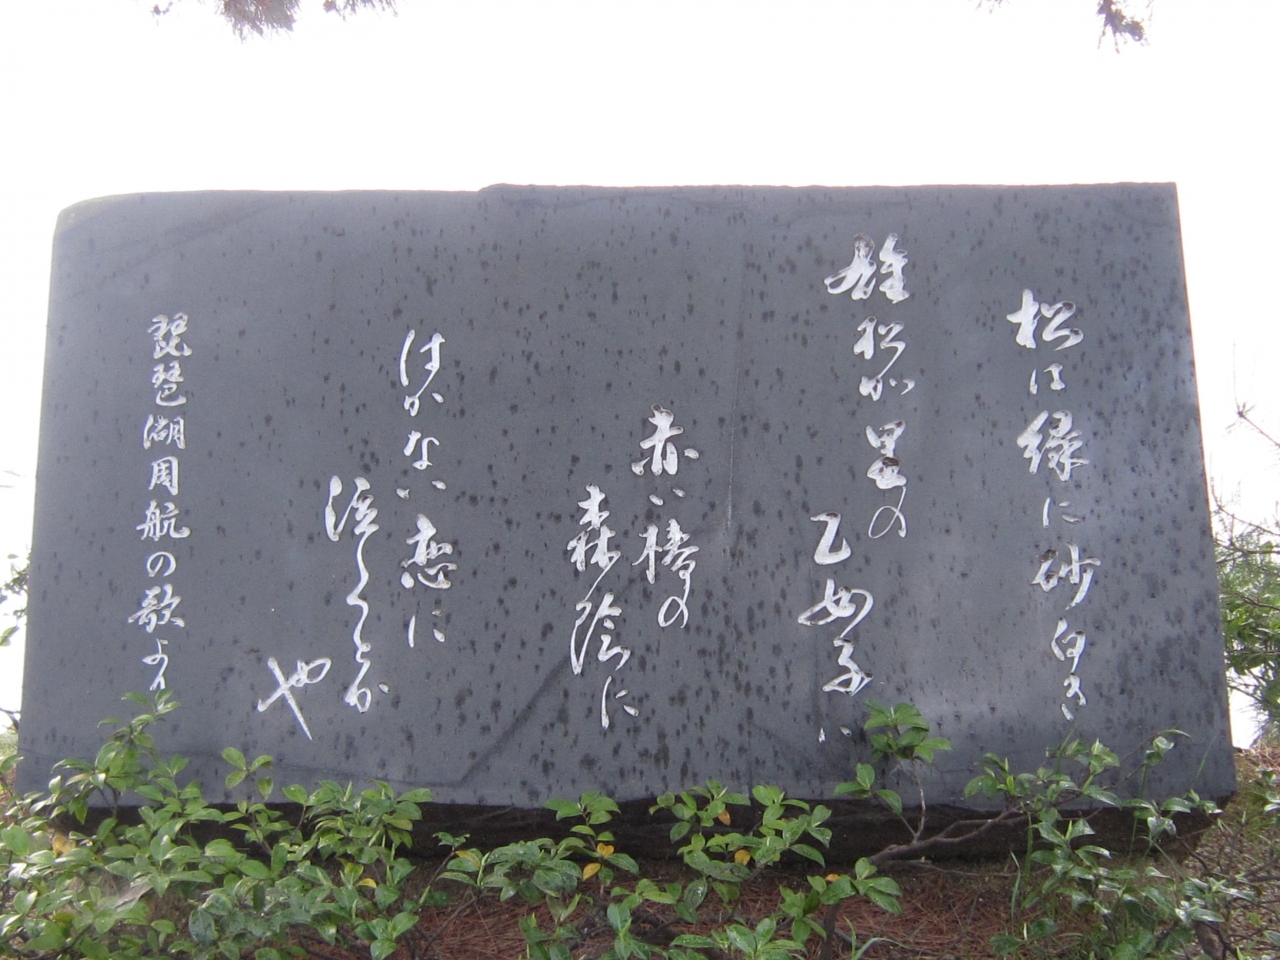 松は緑に砂白き
雄松が里の
乙女子は
赤い椿の
森陰に
はかない恋に
泣くとか
や
琵琶湖周航の歌より